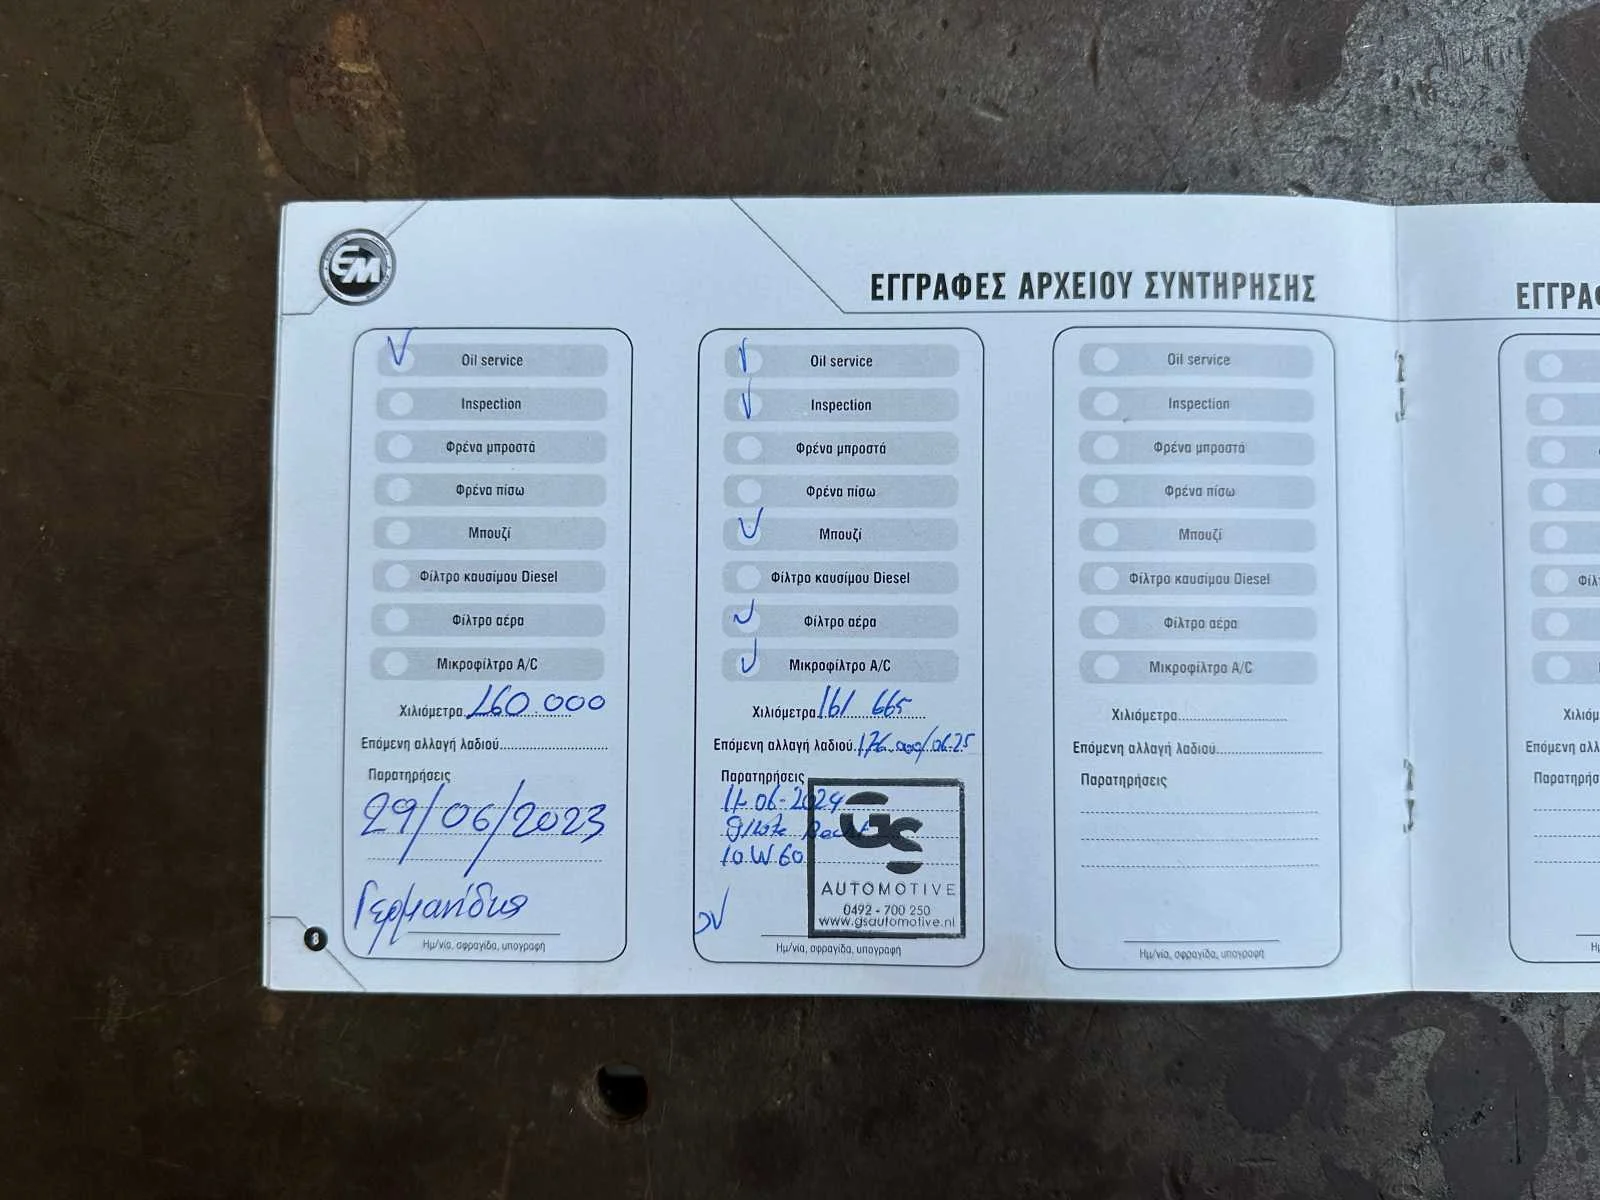 EM
ΕΓΓΡΑΦΕΣ ΑΡΧΕΙΟΥ ΣΥΝΤΗΡΗΣΗΣ
Oil service
Inspection
Φρένα μπροστά
Φρένα πίσω
Μπουζί
Φίλτρο καυσίμου Diesel
Φίλτρο αέρα
Μικροφίλτρο A/C
Χιλιόμετρα 160.000
Επόμενη αλλαγή λαδιού
Παρατηρήσεις
29/06/2023
Γερμανίδης
Ημ/νία, σφραγίδα, υπογραφή
8
Oil service
Inspection
Φρένα μπροστά
Φρένα πίσω
Μπουζί
Φίλτρο καυσίμου Diesel
Φίλτρο αέρα
Μικροφίλτρο A/C
Χιλιόμετρα 161 665
Επόμενη αλλαγή λαδιού 176.000/06-25
Παρατηρήσεις
11-06-2024
10W60
GS
AUTOMOTIVE
0492 - 700 250
www.gsautomotive.nl
Ημ/νία, σφραγίδα, υπογραφή
Oil service
Inspection
Φρένα μπροστά
Φρένα πίσω
Μπουζί
Φίλτρο καυσίμου Diesel
Φίλτρο αέρα
Μικροφίλτρο A/C
Χιλιόμετρα
Επόμενη αλλαγή λαδιού
Παρατηρήσεις
Ημ/νία, σφραγίδα, υπογραφή
ΕΓΓΡΑΦ
Φίλ
Χιλιόμ
Επόμενη αλλ
Παρατηρήσ